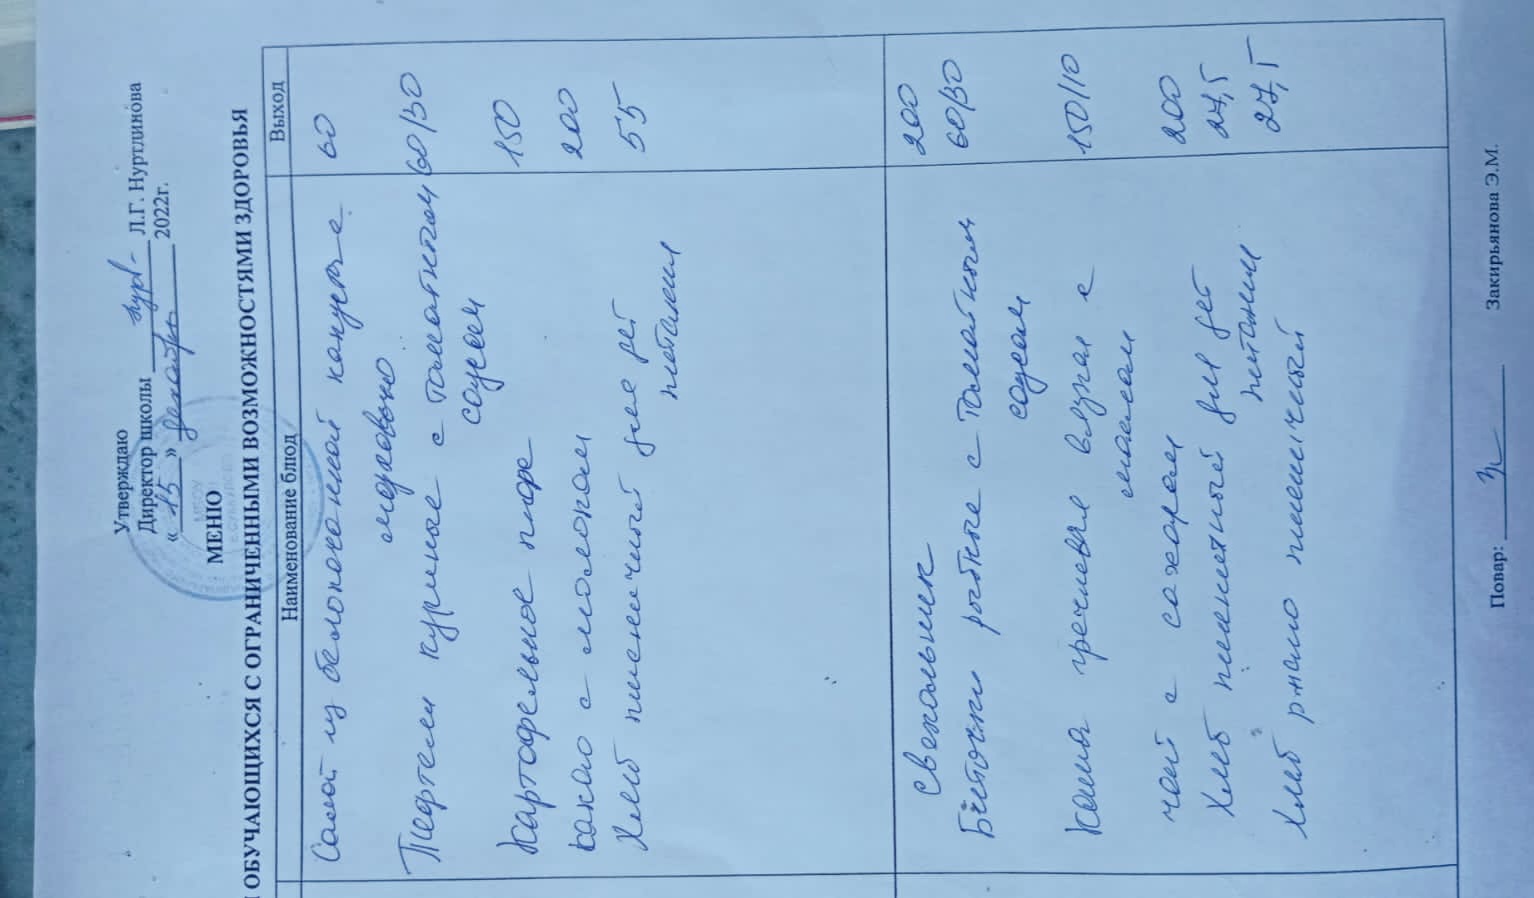 Утверждаю
Директор школы Л.Г. Нуртдинова
« 15 » декабря 2022г.
МЕНЮ
ОБУЧАЮЩИХСЯ С ОГРАНИЧЕННЫМИ ВОЗМОЖНОСТЯМИ ЗДОРОВЬЯ
Наименование блюд Выход
Салат из белокочанной капусты с 60
морковью
Тефтели куриные с томатным 60/30
соусом
Картофельное пюре 150
Какао с молоком 200
Хлеб пшеничный для дет 55
питания
Свекольник 200
Биточки рыбные с томатным 60/30
соусом
Каша гречневая вязкая с 150/10
маслом
чай с сахаром 200
Хлеб пшеничный для дет 27,5
питания 27,5
Хлеб ржано пшеничный
Повар: Закирьянова Э.М.